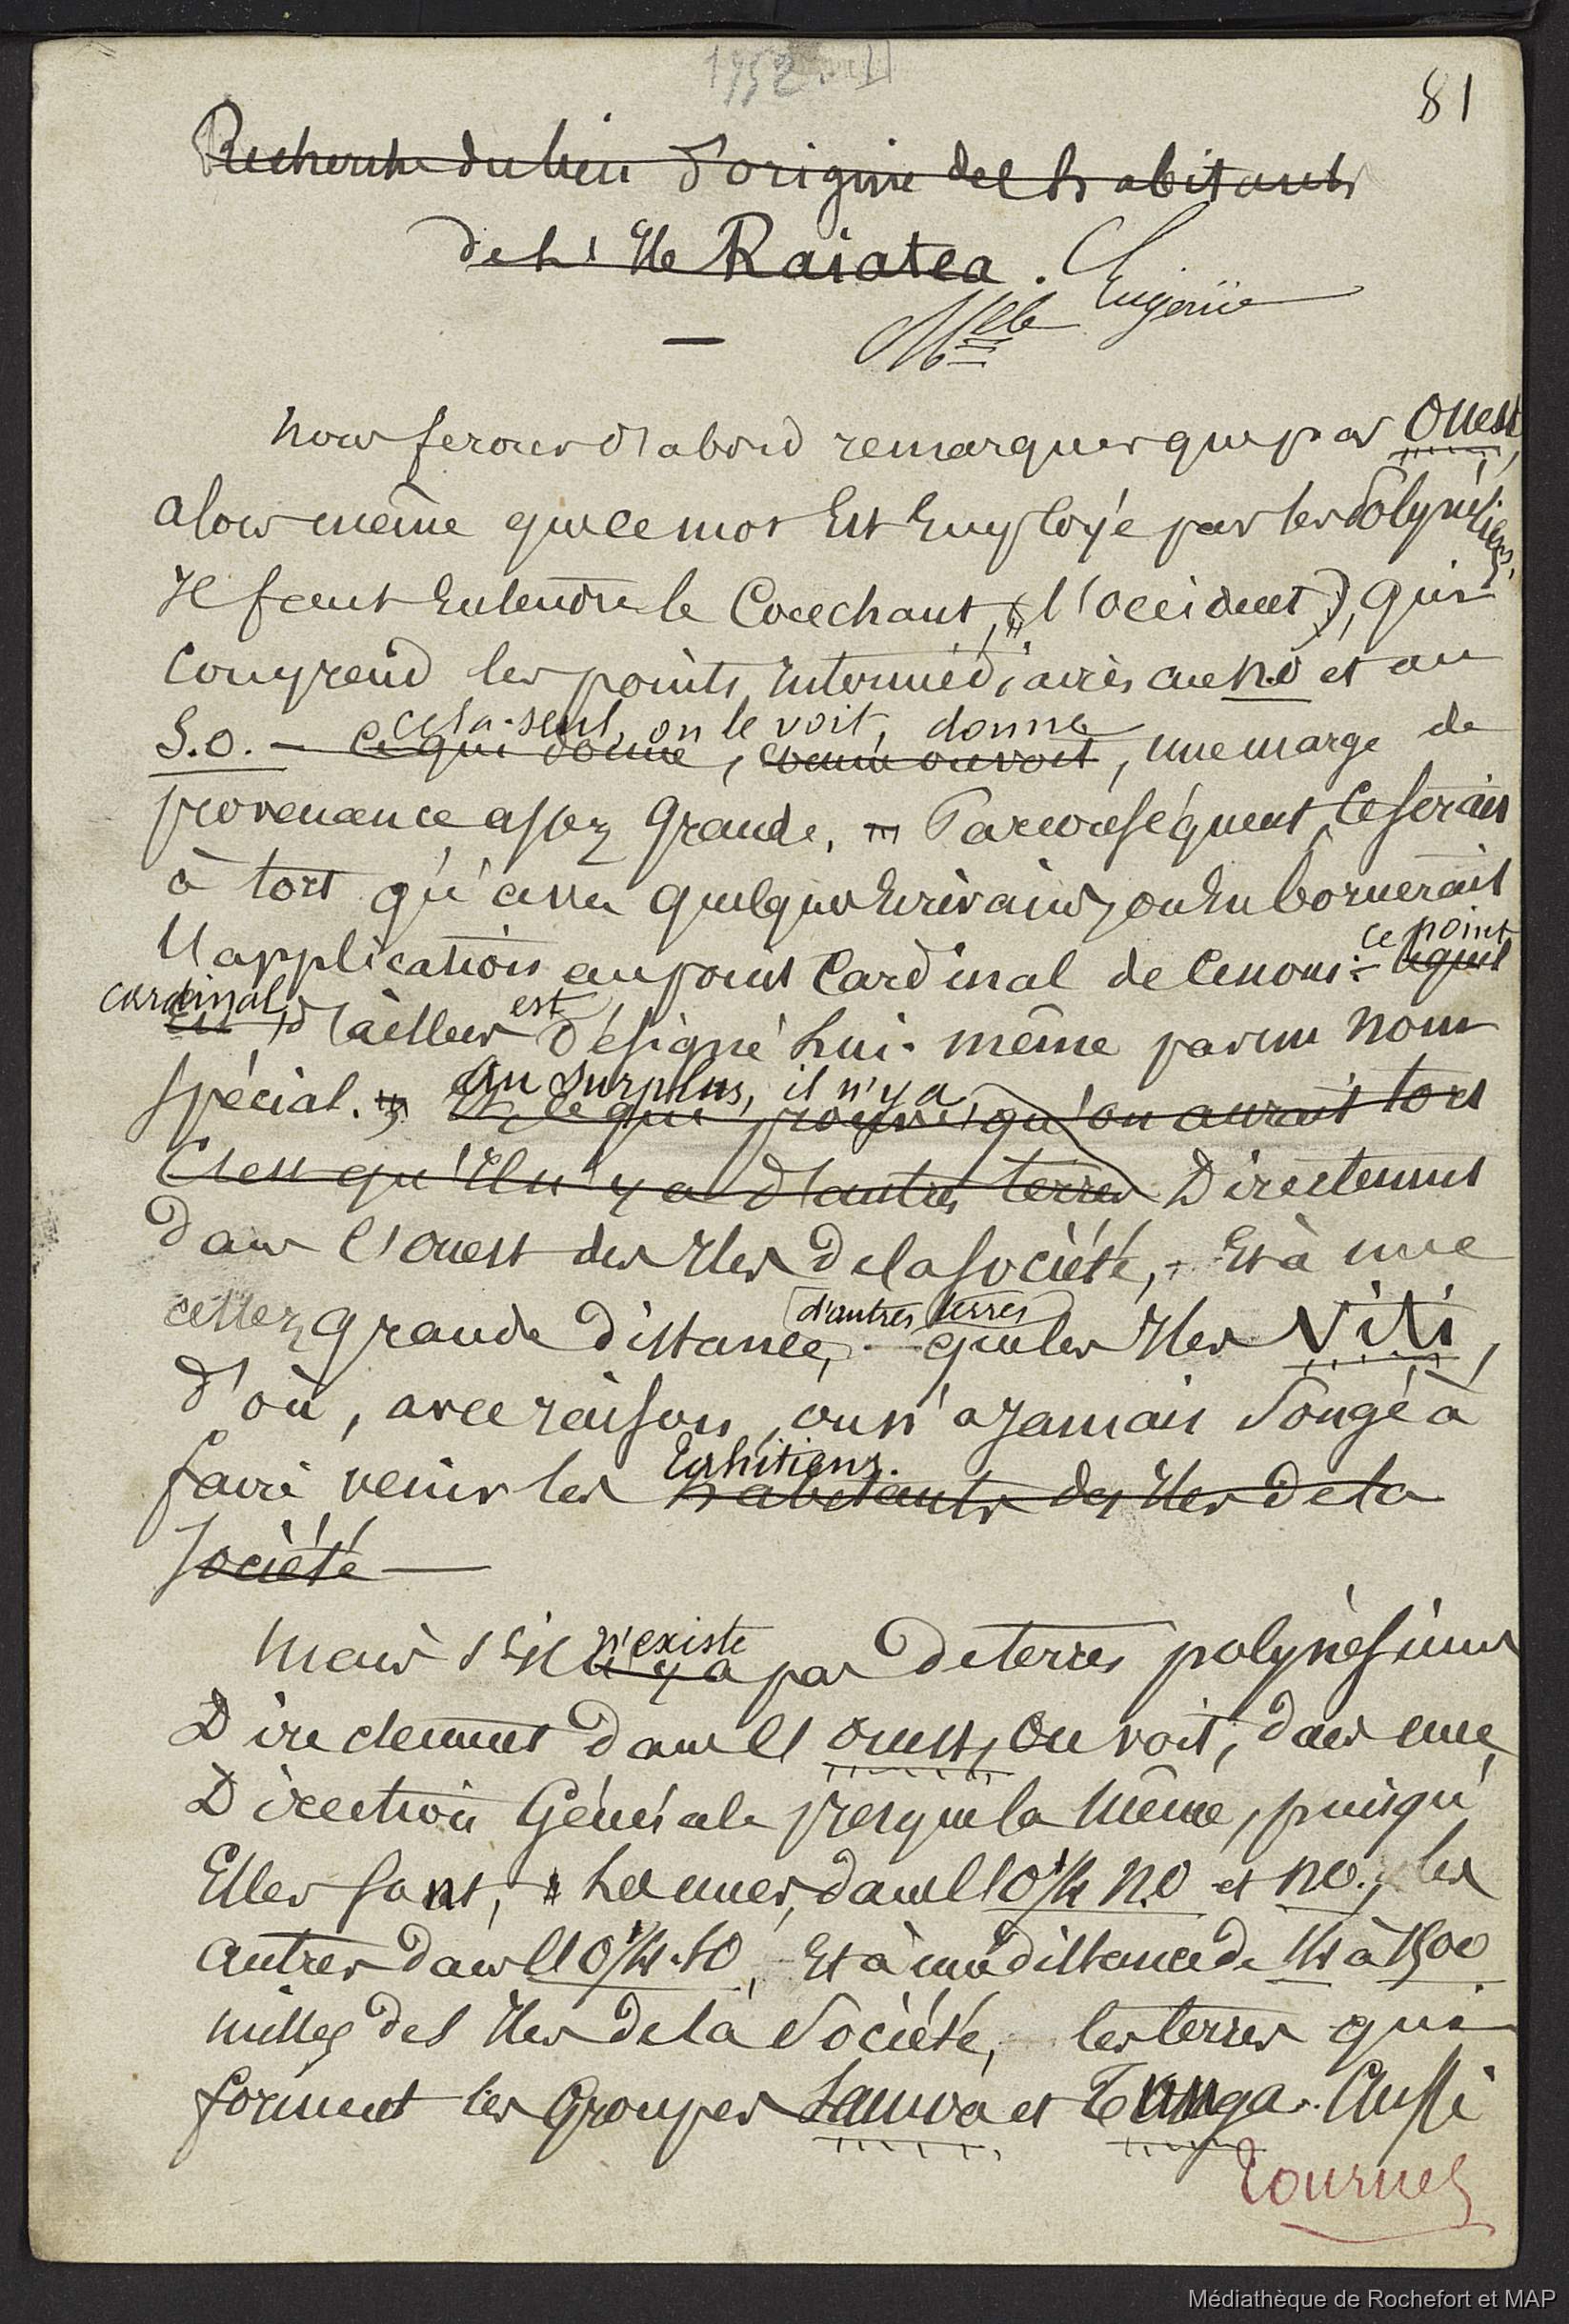 1952
81
Recherche du lieu d'origine des habitants
de l'Ile Raiatea.
Mlle Eugénie
Nous ferons d'abord remarquer que par Ouest,
alors même que ce mot est employé par les Polynésiens,
il faut entendre le Couchant, (l'occident), qui
comprend les points intermédiaires au N.O et au
cela seul, on le voit, donne
S.O. - ce qui donne, comme on voit, une marge de
provenance assez grande. Par conséquent, ce serait
à tort qu'avec quelques écrivains, on en bornerait
ce point
l'application au point Cardinal de ce nom: lequel
cardinal, est
est d'ailleurs désigné lui-même par un nom
Au surplus, il n'y a
spécial. Et ce qui prouve qu'on aurait tort
c'est qu'il n'y a d'autres terres Directement
dans l'ouest des Iles de la Société, - et à une
d'autres terres
assez grande distance, que les Iles Viti,
d'où, avec raison, on n'a jamais songé à
Tahitiens.
faire venir les habitants des Iles de la
Société
n'existe
Mais s'il n'y a pas de terres polynésiennes
Directement dans l'ouest, on voit, dans une
Direction Générale presque la même, puisqu'
Elles sont, les unes, dans l'O 1/4 N.O et N.O., les
autres dans l'O 1/4 SO, et à une distance de 14 à 1500
milles des Iles de la Société, les terres qui
forment les Groupes Samoa et Tonga. Aussi
Tournez